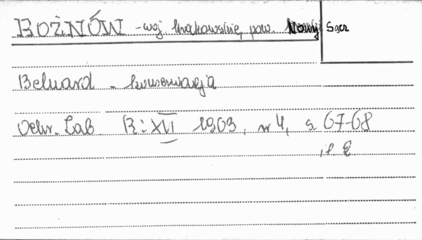 ROŻNÓW - woj. krakowskie, pow. Nowy Sącz
Beluard - konserwacja
Ochr. Zab. R: XVI 1963, nr 4, s 67-68
, f. 2